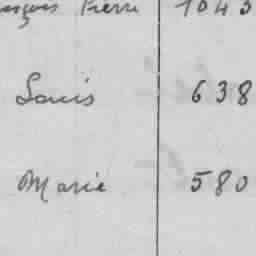 Pierre 1043
Louis 638
Marie 580